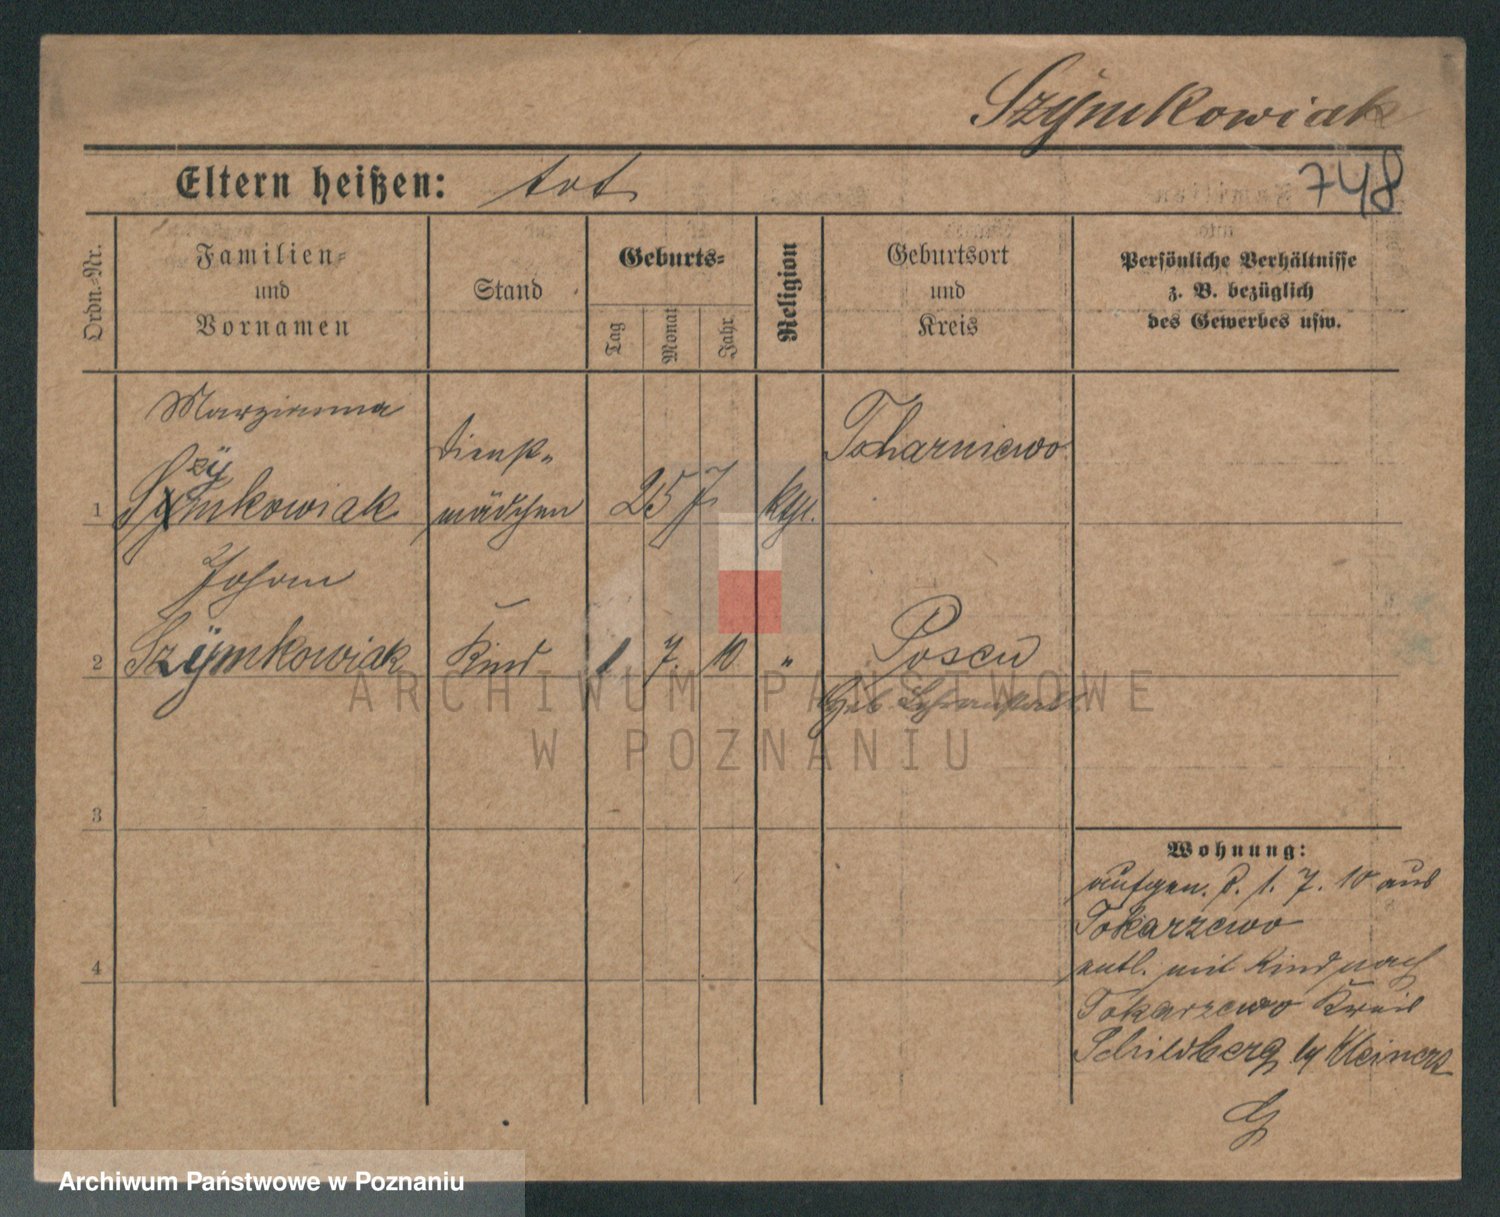 Szÿmkowiak
Eltern heißen: tot
748
Ordn.-Nr.
Familien-
und
Vornamen
Stand
Geburts-
Tag
Monat
Jahr
Religion
Geburtsort
und
Kreis
Persönliche Verhältnisse
z. B. bezüglich
des Gewerbes usw.
Marzianna
Dienst-
Tokarniewo
zÿ
1 Symkowiak mädchen 25 J. kth.
Johann
2 Szÿmkowiak Kind 1 7. 10 " Posen
Geb.
3
4
Wohnung:
aufgen. d. 1. 7. 10 aus
Tokarzewo
entl. mit Kind nach
Tokarzewo Kreis
Schildberg
ARCHIWUM PAŃSTWOWE
W POZNANIU
Archiwum Państwowe w Poznaniu